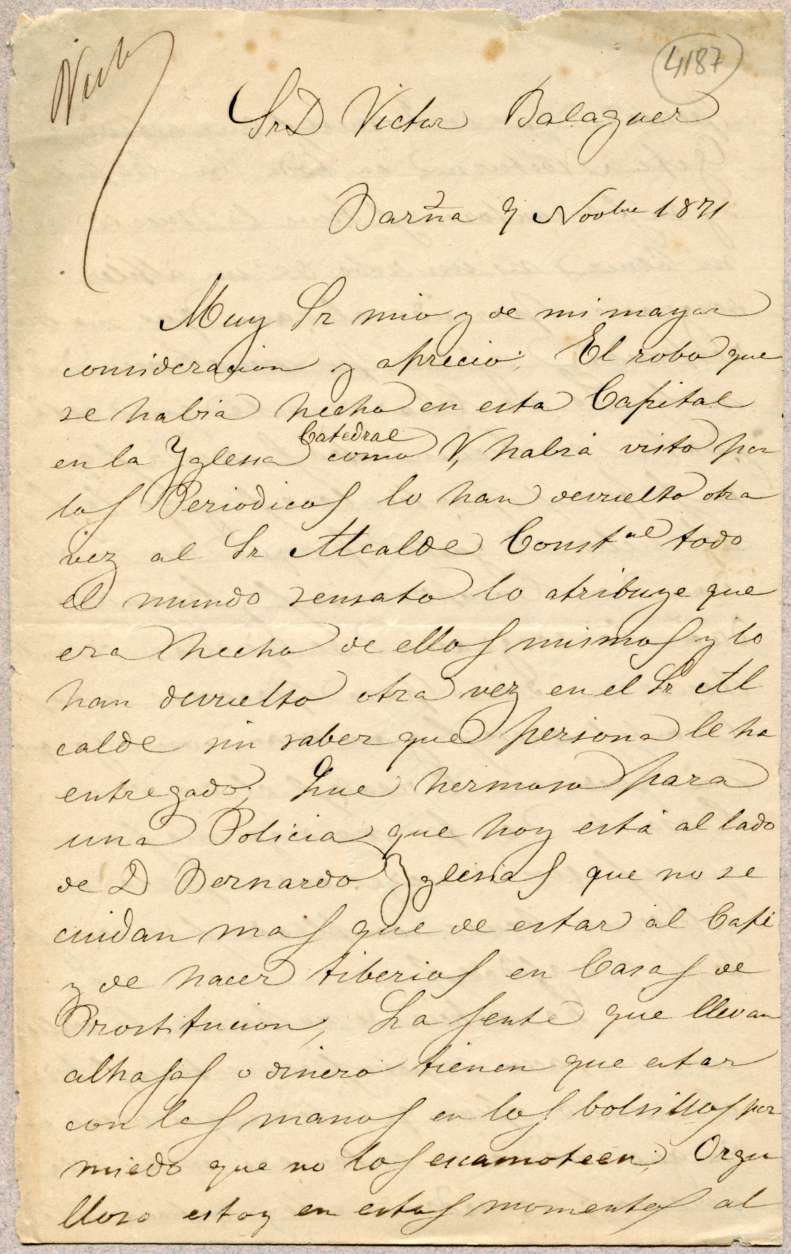 4187
Sr D Victor Balaguer
Barña 7 Novbre 1871
Muy Sr mio y de mi mayor
consideracion y aprecio; El robo que
se habia hecho en esta Capital
en la Yglesia Catedral como V, habrá visto por
los Periodicos lo han devuelto otra
vez al Sr Alcalde Constal todo
el mundo sensato lo atribuye que
era hecho de ellos mismos y lo
han devuelto otra vez en el Sr Al
calde sin saber que persona le ha
entregado; Que hermoso para
una Policia que hoy está al lado
de D Bernardo Yglesias que no se
cuidan mas que de estar al Café
y de hacer tiberios en Casas de
Prostitucion, La Gente que llevan
alhajas o dinero tienen que estar
con las manos en los bolsillos por
miedo que no los escamoteen; Orgu
lloso estoy en estos momentos al